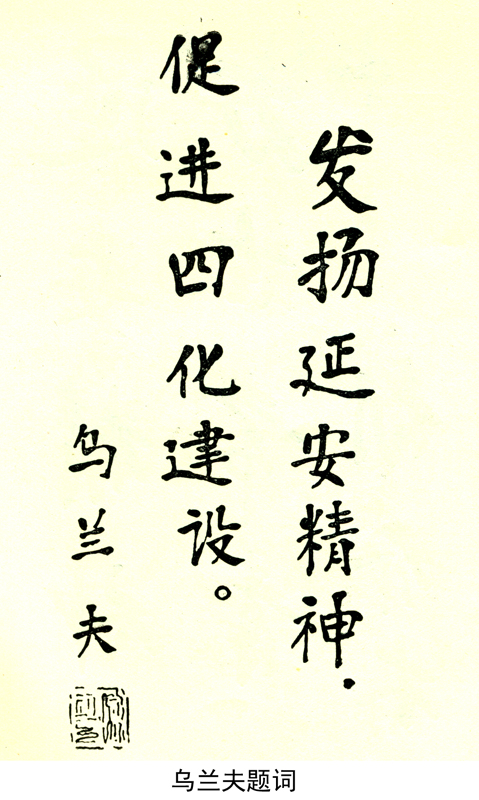 发扬延安精神．
促进四化建设。
乌兰夫
乌兰夫题词